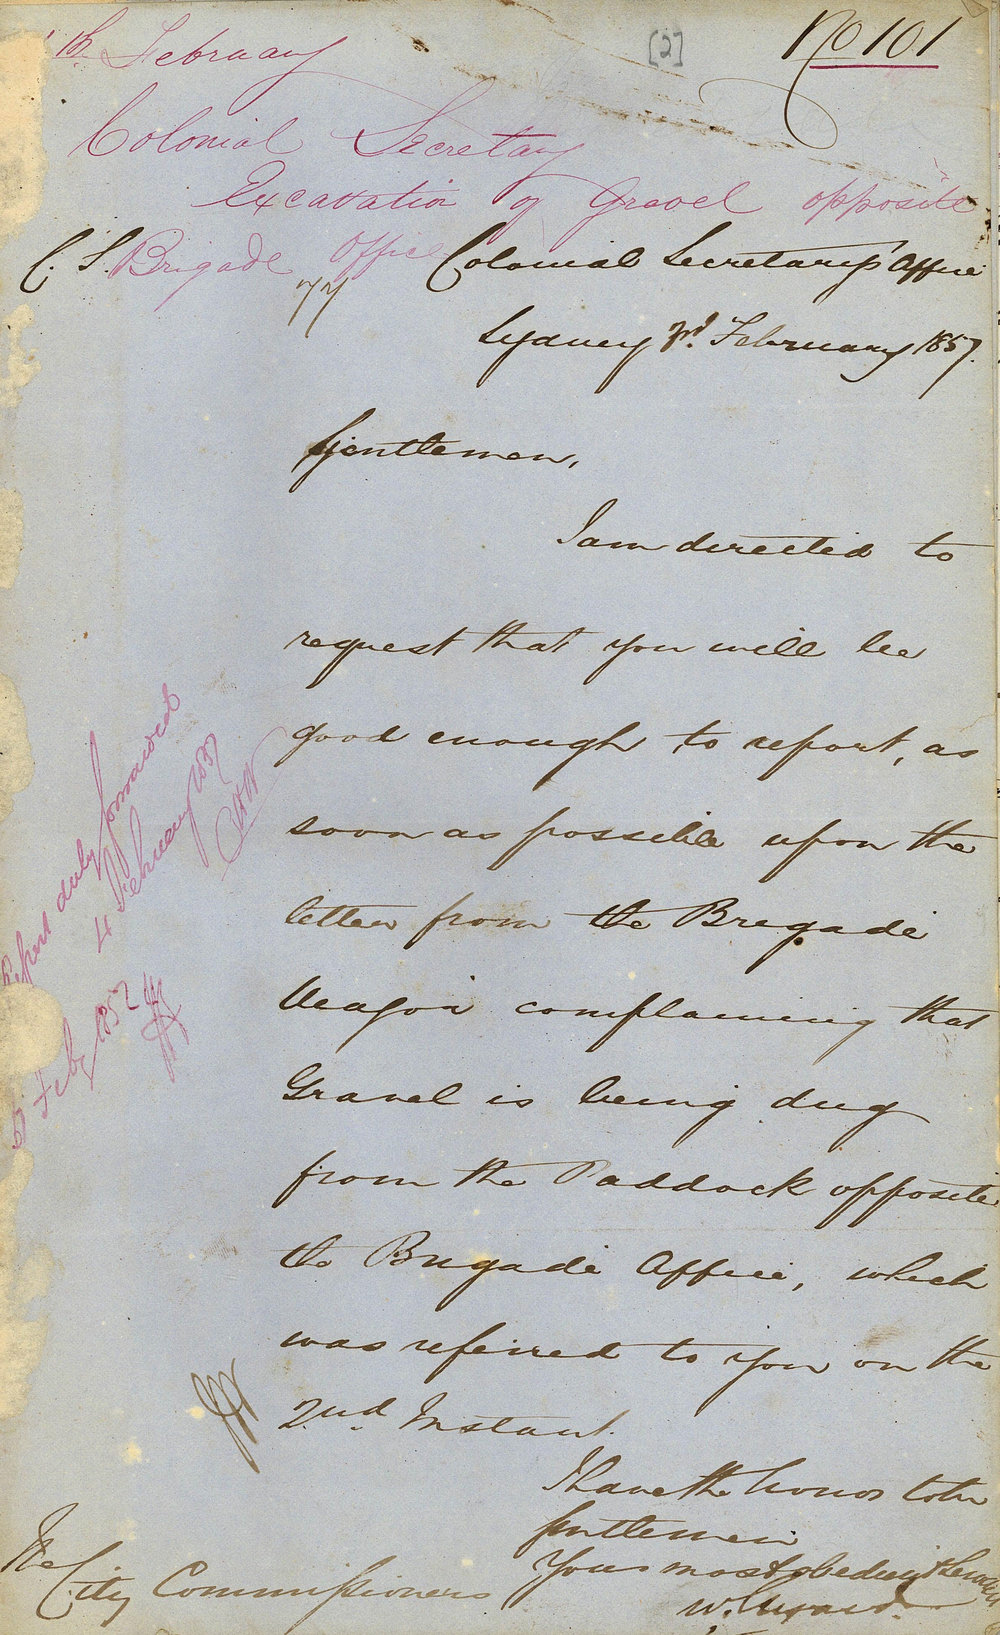 th February
[2]
No 101
Colonial Secretary
Excavation of Gravel opposite
Brigade Office
C. S.
77
Colonial Secretary's Office
Sydney 3rd February 1857.
Gentlemen,
I am directed to
request that you will be
good enough to report, as
soon as possible upon the
letter from the Brigade
Major complaining that
Gravel is being dug
from the Paddock opposite
the Brigade Office, which
was referred to you on the
2nd Instant.
I have the honor to be
Gentlemen
Your most obedient Servant
W.
The
City Commissioners
Report duly forwarded
4 February 1857
5 Feby 1857